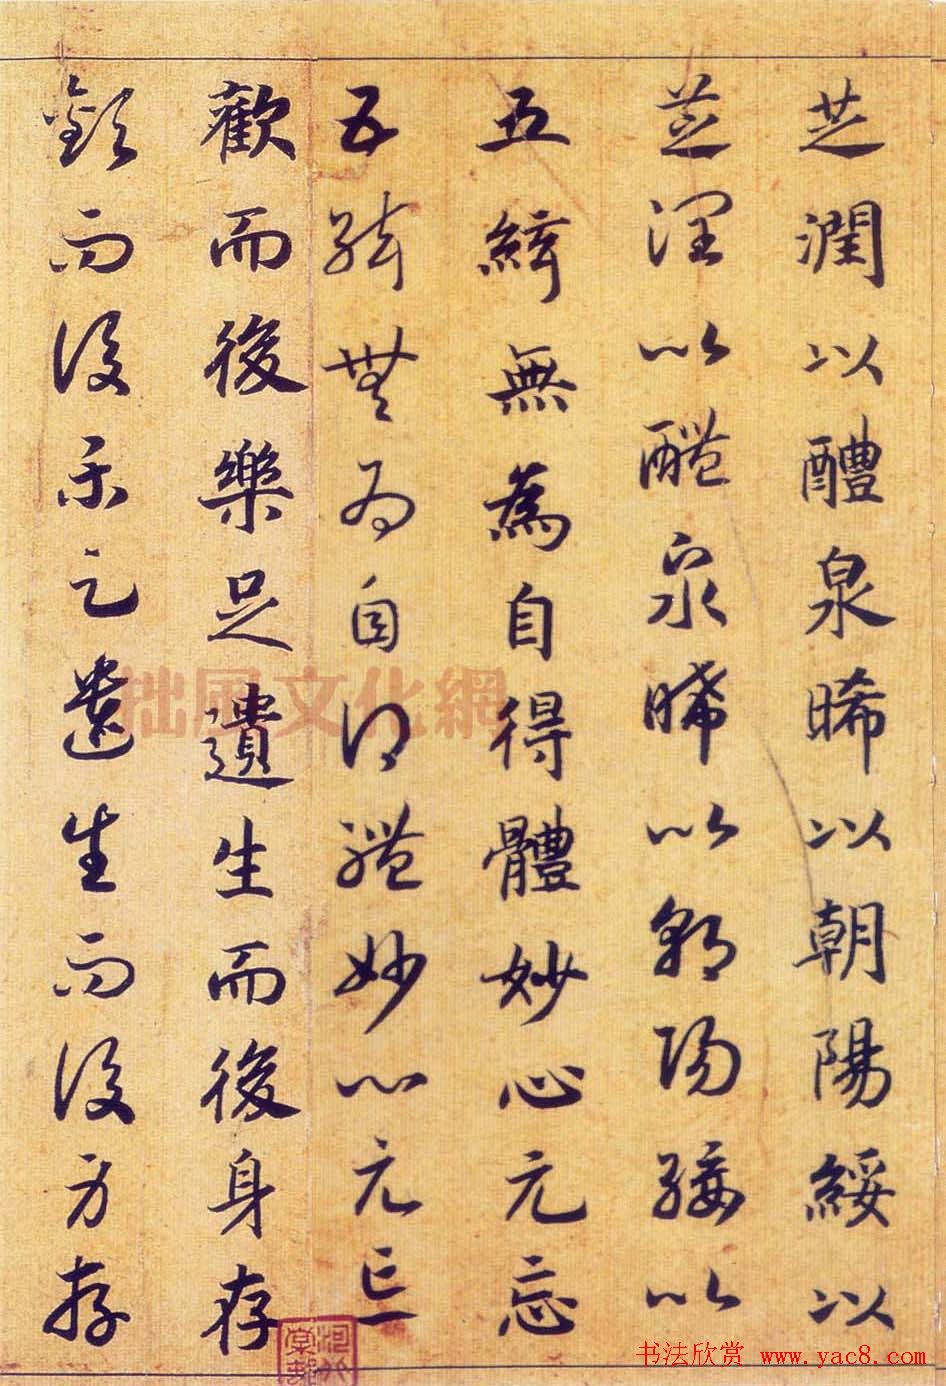 芝潤以醴泉晞以朝陽綏以
芝潤以醴泉晞以朝陽綏以
五絃無為自得體妙心元忘
五絃無為自得體妙心元忘
歡而後樂足遺生而後身存
歡而後樂足遺生而後身存
拙風文化網
书法欣赏 www.yac8.com